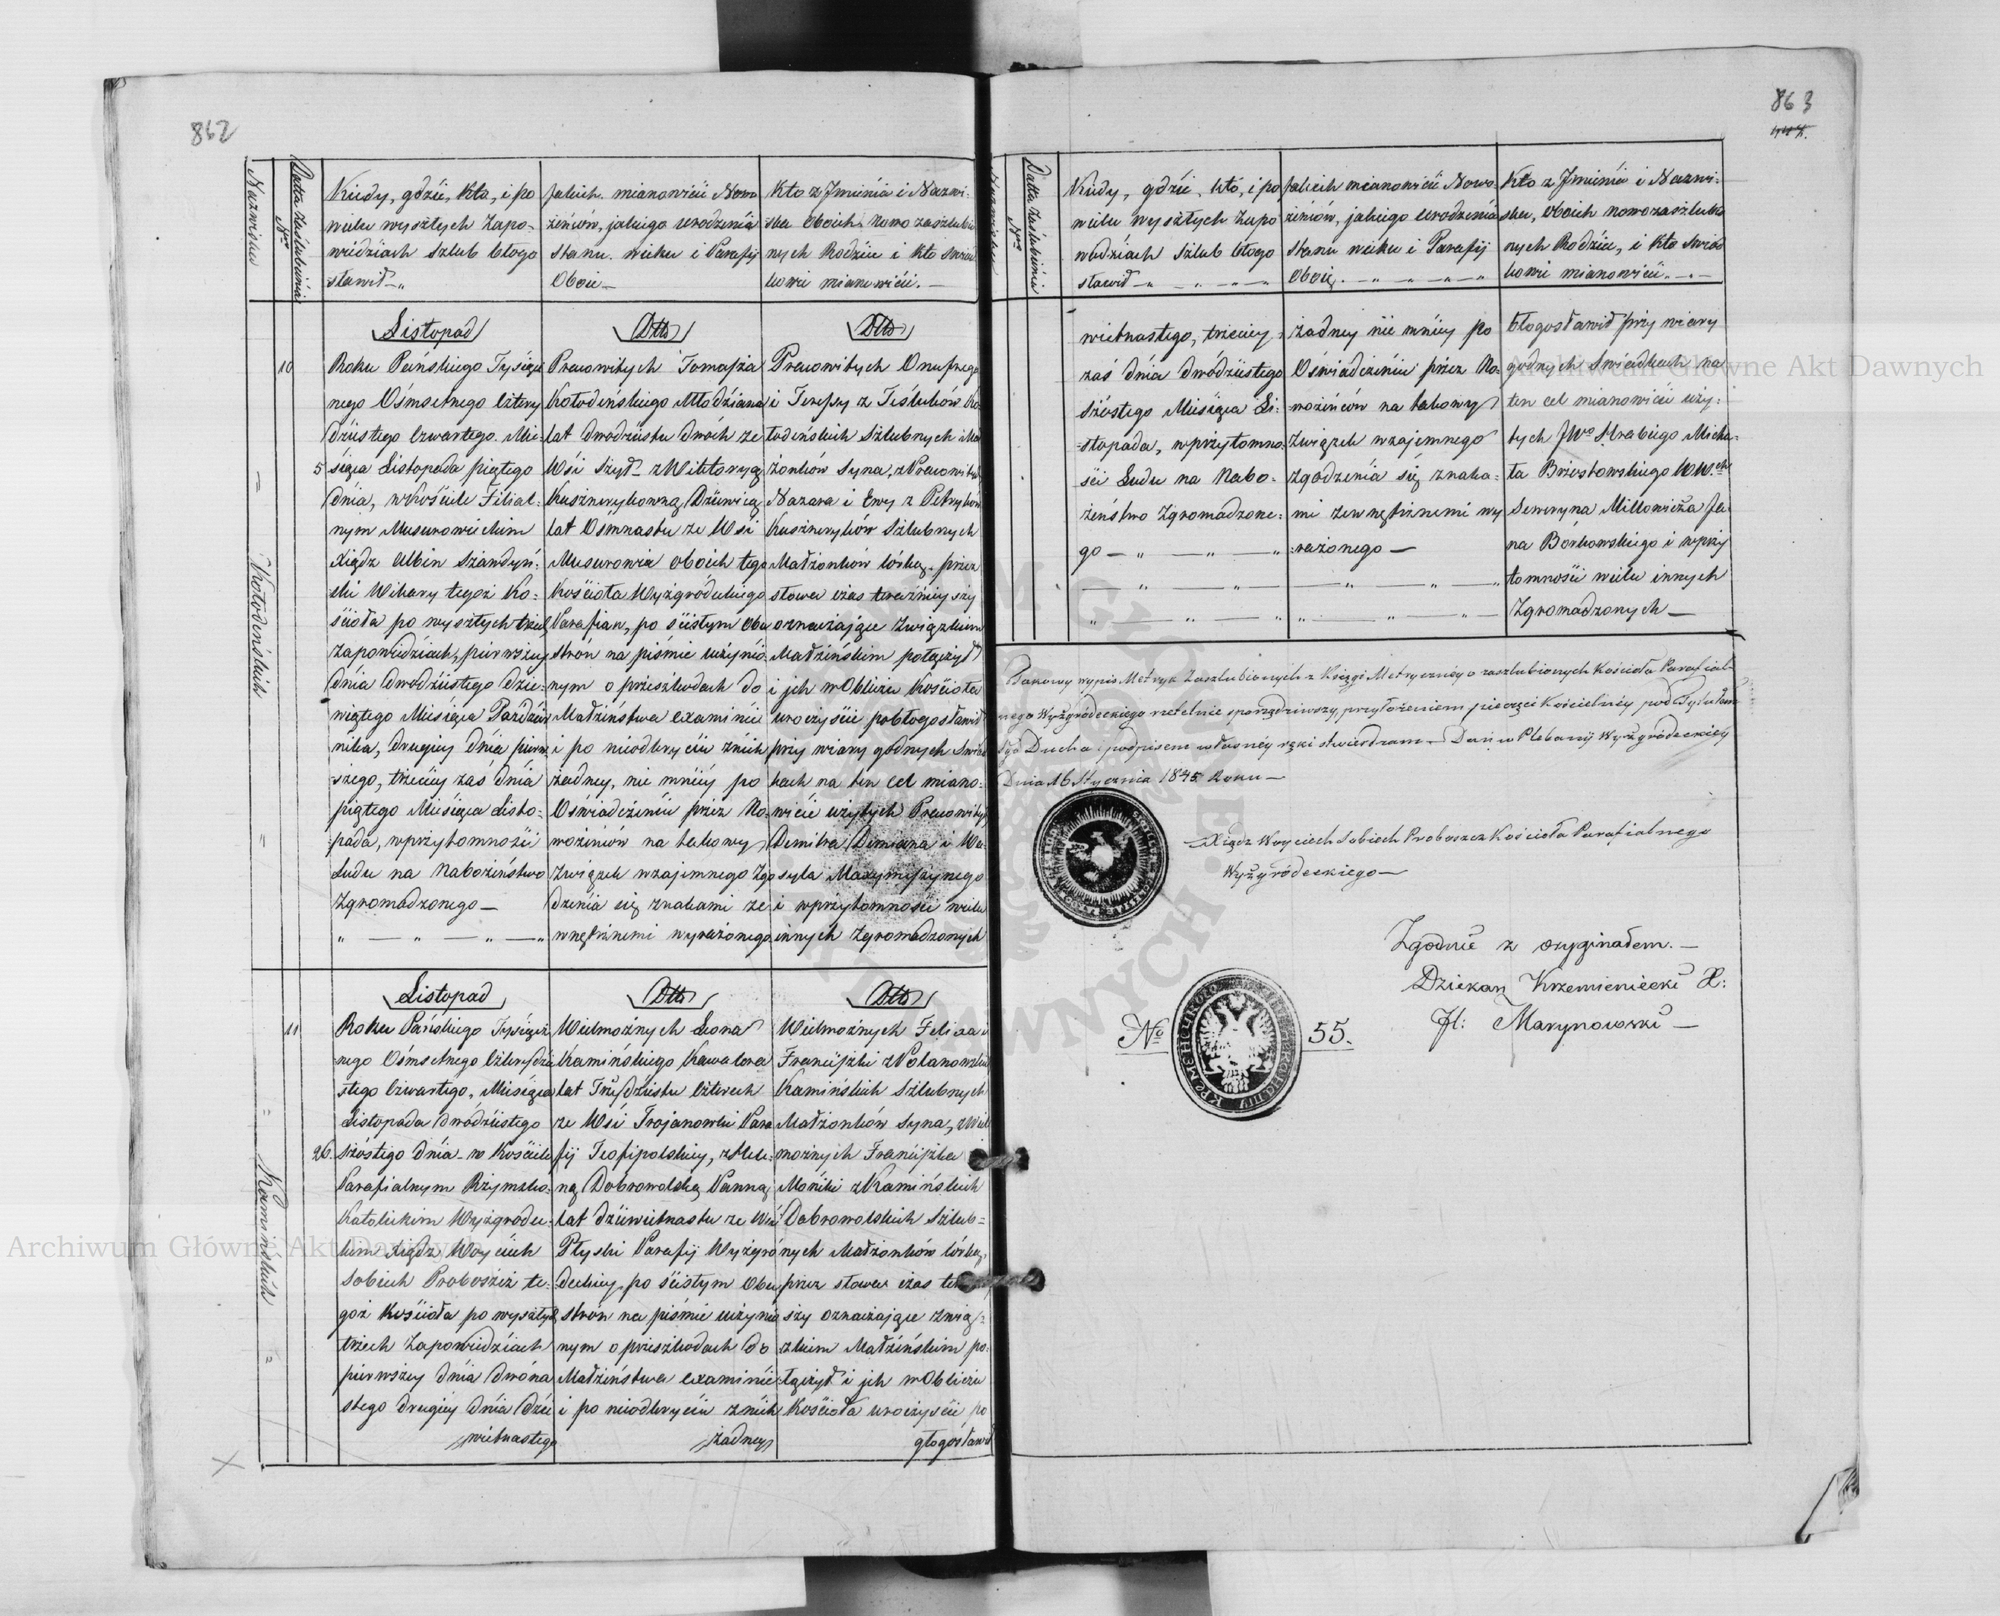 862
Nazwiska
Datta Zaślubienia
Nro
Kiedy, gdzie, kto, i po
wielu wyszłych Zapo-
wiedziach Szlub błogo
sławił
Jakich mianowicie Nowo
żeńców, jakiego urodzenia
Stanu wieku i Parafij
Oboie
Kto z Jmienia i Nazwi-
ska Oboich Nowo zaszlubio
nych Rodzice i kto świad
kowie mianowicie.
10
5
Kołodeńskich
Listopad
Roku Pańskiego Tysiącz
nego Ośmsetnego Cztery
dziestego Czwartego Mie-
siąca Listopada piątego
dnia, w Kościele Filial-
nym Musurowieckim
Xiądz Albin Szandyń-
ski Wikary tegoż Ko-
ścioła po wyszłych trzech
Zapowiedziach, pierwszey
dnia dwódziestego dzie-
wiątego Miesiąca Paździer
nika, drugiey dnia pierw
szego, trzeciey zaś dnia
piątego Miesiąca Listo-
pada, w przytomności
Ludu na Nabożeństwo
Zgromadzonego
Dtto
Pracowitych Tomasza
Kołodeńskiego Młodziana
lat dwódziestu dwóch ze
Wsi z Wiktoryą
Kusznerykowną Dziewicą
lat Ośmnastu ze Wsi
Musurowiec oboich tego
Kościoła Wyżgródeckiego
Parafian, po ścisłym Obu
stron na piśmie uczynio
nym o przeszkodach do
Małżeństwa examinie
i po nieodkryciu żnich
żadney, nie mniéy po
Oświadczeniu przez No-
wożeńców na takowy
Związek wzajemnego Zgo
dzenia się znakami ze
wnętrznemi wyrażonego
Dtto
Pracowitych Onufrego
i Teresy z Ko-
łodeńskich Szlubnych Mał
żonków Syna, z Pracowitych
Nazara i Ewy z Petryków
Kuszneryków Szlubnych
Małżonków Córką, przez
słowa czas teraźnieyszy
oznaczające Związkiem
Małżeńskim połączył
i jch w Obliczu Kościoła
uroczyście pobłogosławił
przy wiary godnych Świad
kach na ten cel miano-
wicie użytych Pracowitych
Dmitra Demiana i Wa-
syla Maxymiszynego
i w przytomności wielu
innych Zgromadzonych
11
26.
Kamińskich
Listopad
Roku Pańskiego Tysiącz
nego Ośmsetnego Czterydzie
stego Czwartego, Miesiąca
Listopada dwódziestego
szóstego dnia w Kościele
Parafialnym Rzymsko-
Katolickim Wyżgrodec-
kim Xiądz Woyciech
Sobiech Proboszcz te-
goż Kościoła po wyszłych
trzech Zapowiedziach
pierwszey dnia dwóna
stego drugiéy dnia dzie
wietnastego
Dtto
Wielmożnych Leona
Kamińskiego Kawalera
lat Trzydziestu Czterech
ze Wsi Trojanowki Para
fij Teofipolskiey, z Hele-
ną Dobrowolską Panną
lat dziewietnastu ze Wsi
Płyski Parafij Wyżgró
deckiey, po ścisłym Obu
stron na piśmie uczynio
nym o przeszkodach do
Małżeństwa examinie
i po nieodkryciu żnich
żadney
Dtto
Wielmożnych Felixa i
Franciszki z Polanowskich
Kamińskich Szlubnych
Małżonków Syna, z Wiel
możnych Franciszka
Moniki z Kamińskich
Dobrowolskich Szlub-
nych Małżonków Córką,
przez słowa czas
szy oznaczające Zwią-
zkiem Małżeńskim po-
łączył i jch w Obliczu
Kościoła uroczyście po
głogosławił
863
Nazwiska
Datta Zaślubienia
Nro
Kiedy, gdzie, kto, i po
wielu wyszłych Zapo
wiedziach Szlub błogo
sławił
Jakich mianowicie Nowo-
żeńców, jakiego urodzenia
stanu wieku i Parafij
Oboie
Kto z Jmienia i Nazwi-
ska, oboich nowozaszlubio
nych Rodzice, i kto świad
kowie mianowicie
wietnastego, trzeciey
zaś dnia dwódziestego
szóstego Miesiąca Li-
stopada, w przytomno-
ści Ludu na Nabo-
żeństwo Zgromadzone-
go
żadney nie mniéy po
Oświadczeniu przez No-
wożeńców na takowy
Związek wzajemnego
zgodzenia się znaka-
mi zewnętrznemi wy
rażonego
błogosławił przy wiary
godnych Świadkach na
ten cel mianowicie uży-
tych JWo Hrabiego Micha-
ła Brzostowskiego WWch
Seweryna Millowicza Ja
na Borkowskiego i w przy
tomności wielu innych
Zgromadzonych
Takowy wypis Metryk Zaszlubionych z Księgi Metryczney o zaszlubionych Kościoła Parafial-
nego Wyżgródeckiego rzetelnie sporządziwszy, przyłożeniem pieczęci Kościelnéy pod Tytułem
Sgo Ducha i podpisem własnéy ręki stwierdzam Dań w Plebanij Wyżgródeckiéy
Dnia 16 Stycznia 1845 Roku
Xiądz Woyciech Sobiech Proboszcz Kościoła Parafialnego
Wyżgródeckiego
Zgodnie z oryginałem.
Dziekan Krzemieniecki X:
Jl: Marynowski
No 55.
Archiwum Główne Akt Dawnych
Archiwum Główne Akt Dawnych